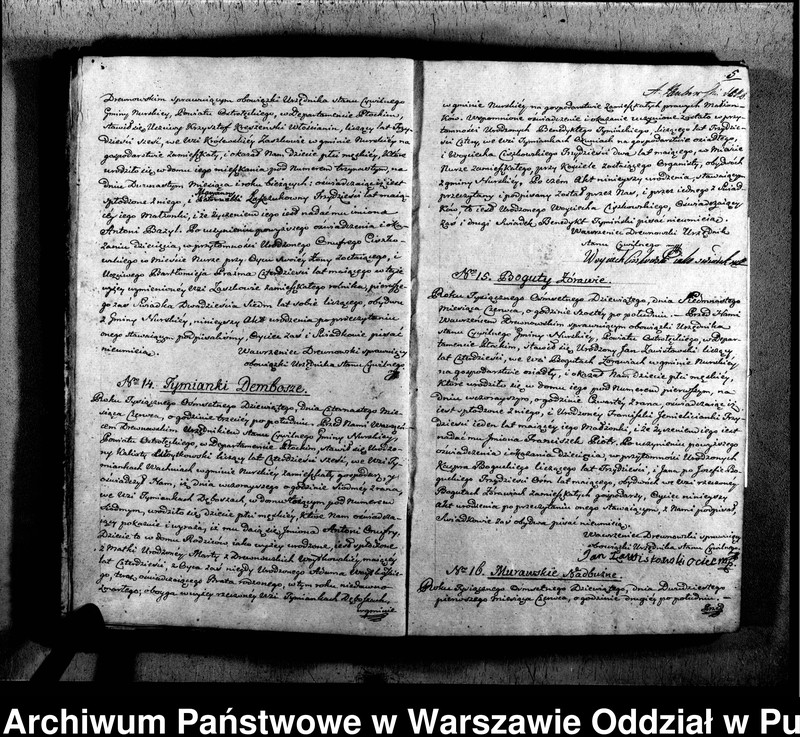 Drewnowskim sprawuiącym obowiązki Urzędnika Stanu Cywilnego
Gminy Nurskiey, Powiatu Ostrołęckiego, w Departamencie Płockim,
stawił się Uczciwy Krzysztof Włościanin, liczący lat Trzy-
dzieści Sześć, we Wsi Zaszkowie w gminie Nurskiey na
gospodarstwie zamieszkały, i okazał Nam dziecie płci męzkiey, które
urodziło się w domu iego mieszkania pod Numerem Trzynastym, na
dniu Dwunastym Miesiąca i roku bieżących; oświadczaiąc iż iest
spłodzone z niego, i Trzydzieści lat maią-
cey iego Małżonki, i że życzeniem iego iest nadać mu imiona
Antoni Bazyl. Po uczynieniu powyższego oświadczenia i oka-
zaniu dziecięcia, w przytomności Urodzonego Onufrego Ciszko-
wskiego w mieście Nurze przy Oycu swoiey żony zostaiącego, i
Uczciwego Bartłomieja Prazma Czterdzieści lat maiącego w tejże
wyżey wymienioney Wsi Zaszkowie zamieszkałego rolnika, pierwsze-
go zaś Świadka Dwadzieścia Siedm lat sobie liczącego, obydwu
z Gminy Nurskiey, ninieyszy Akt urodzenia po przeczytaniu
onego stawaiącym podpisaliśmy, Oyciec zaś i Świadkowie pisać
nieumieią.
Wawrzeniec Drewnowski sprawuiący
obowiązki Urzędnika Stanu Cywilnego
No 14. Tymianki Dembosze.
Roku Tysiącznego Osmsetnego Dziewiątego, dnia Czternastego Mie-
siąca Czerwca, o godzinie trzeciey po południu. Przed Nami Wawrzeń-
cem Drewnowskim Urzędnikiem Stanu Cywilnego Gminy Nurskiey,
Powiatu Ostrołęckiego, w Departamencie Płockim, stawił się Urodzo-
ny Kalixty Woytkowski liczący lat Czterdzieści Sześć, we Wsi Ty-
miankach Wachniach w gminie Nurskiey zamieszkały gospodarz, y
oświadczył Nam, iż dnia wczorayszego o godzinie Siodmey z rana,
we Wsi Tymiankach Dęboszach, w domu leżącym pod Numerem
Siodmym, urodziło się dziecie płci męzkiey, które Nam oświadcza-
iący pokazuie i wyraża, iż mu daią się Imiona Antoni Onufry.
Dziecie te w domu Rodziców iako wyżey urodzone, iest spłodzone
z Matki Urodzoney Marty z Drewnowskich Woytkowskiey, maiącey
lat Czterdzieści, z Oyca zaś niegdy Urodzonego Adama Woytkowskie-
go, teraz oświadczaiącego Brata rodzonego, w tym roku niedawno
zmarłego; oboyga w wyżey rzeczoney Wsi Tymiankach Dęboszach,
w gminie
5
w gminie Nurskiey na gospodarstwie zamieszkałych prawych Małżon-
ków. Wspomnione oświadczenie i okazanie uczynione zostało w przy-
tomności Urodzonych Benedykta Tymińskiego, liczącego lat Trzydzie-
ści Cztery, we Wsi Tymiankach na gospodarstwie osiadłego,
i Woyciecha Ciszkowskiego Trzydzieści Dwa lat maiącego, w Mieście
Nurze zamieszkałego, przy Kościele zostaiącego Organisty, obydwóch
z gminy Nurskiey. Po czem Akt ninieyszy urodzenia, stawaiącym
przeczytany i podpisany został przez Nas, i przez iednego z Świad-
ków, to iest Urodzonego Woyciecha Ciszkowskiego, Oświadczaiący
zaś i drugi Świadek Benedykt Tymiński pisać nieumieią.
Wawrzeniec Drewnowski Urzędnik
Stanu Cywilnego
Woyciech Ciszkowski iako świadek
No 15. Boguty Żorawie.
Roku Tysiącznego Osmsetnego Dziewiątego, dnia Siedmnastego
miesiąca Czerwca, o godzinie Szostey po południu. Przed Nami
Wawrzeńcem Drewnowskim sprawuiącym obowiązki Urzędnika
Stanu Cywilnego Gminy Nurskiey, Powiatu Ostrołęckiego, w Depar-
tamencie Płockim, stawił się Urodzony Jan Zawistowski liczący
lat Czterdzieści, we Wsi Bogutach Żorawiach w gminie Nurskiey
na gospodarstwie osiadły, i okazał Nam dziecie płci męzkiey,
które urodziło się w domu iego pod Numerem pierwszym, na
Dniu wczorayszym, o godzinie Czwartey z rana, oświadczaiąc iż
iest spłodzone z niego, i Urodzoney Franciszki Trzy-
dzieści ieden lat maiącey iego Małżonki, i że życzeniem iego iest
nadać mu Imiona Franciszek Piotr. Po uczynieniu powyższego
oświadczenia i okazaniu Dziecięcia, w przytomności Urodzonych
Kacpra Boguckiego liczącego lat Trzydzieści, i Jana po Jozefie Bo-
guckiego Trzydzieści Osm lat maiącego, obydwóch we Wsi rzeczoney
Bogutach Żorawiach zamieszkałych gospodarzy, Oyciec ninieyszy
Akt urodzenia po przeczytaniu onego stawaiącym, z Nami podpisał,
Świadkowie zaś obydwa pisać nieumieią.
Wawrzeniec Drewnowski sprawuiący
obowiązki Urzędnika Stanu Cywilnego.
Jan Zawistowski Ociec
No 16. Murawskie Nadbużne.
Roku Tysiącznego Osmsetnego Dziewiątego, dnia Dwudziestego
pierwszego miesiąca Czerwca, o godzinie drugiey po południu. –
Przed
Archiwum Państwowe w Warszawie Oddział w Pu